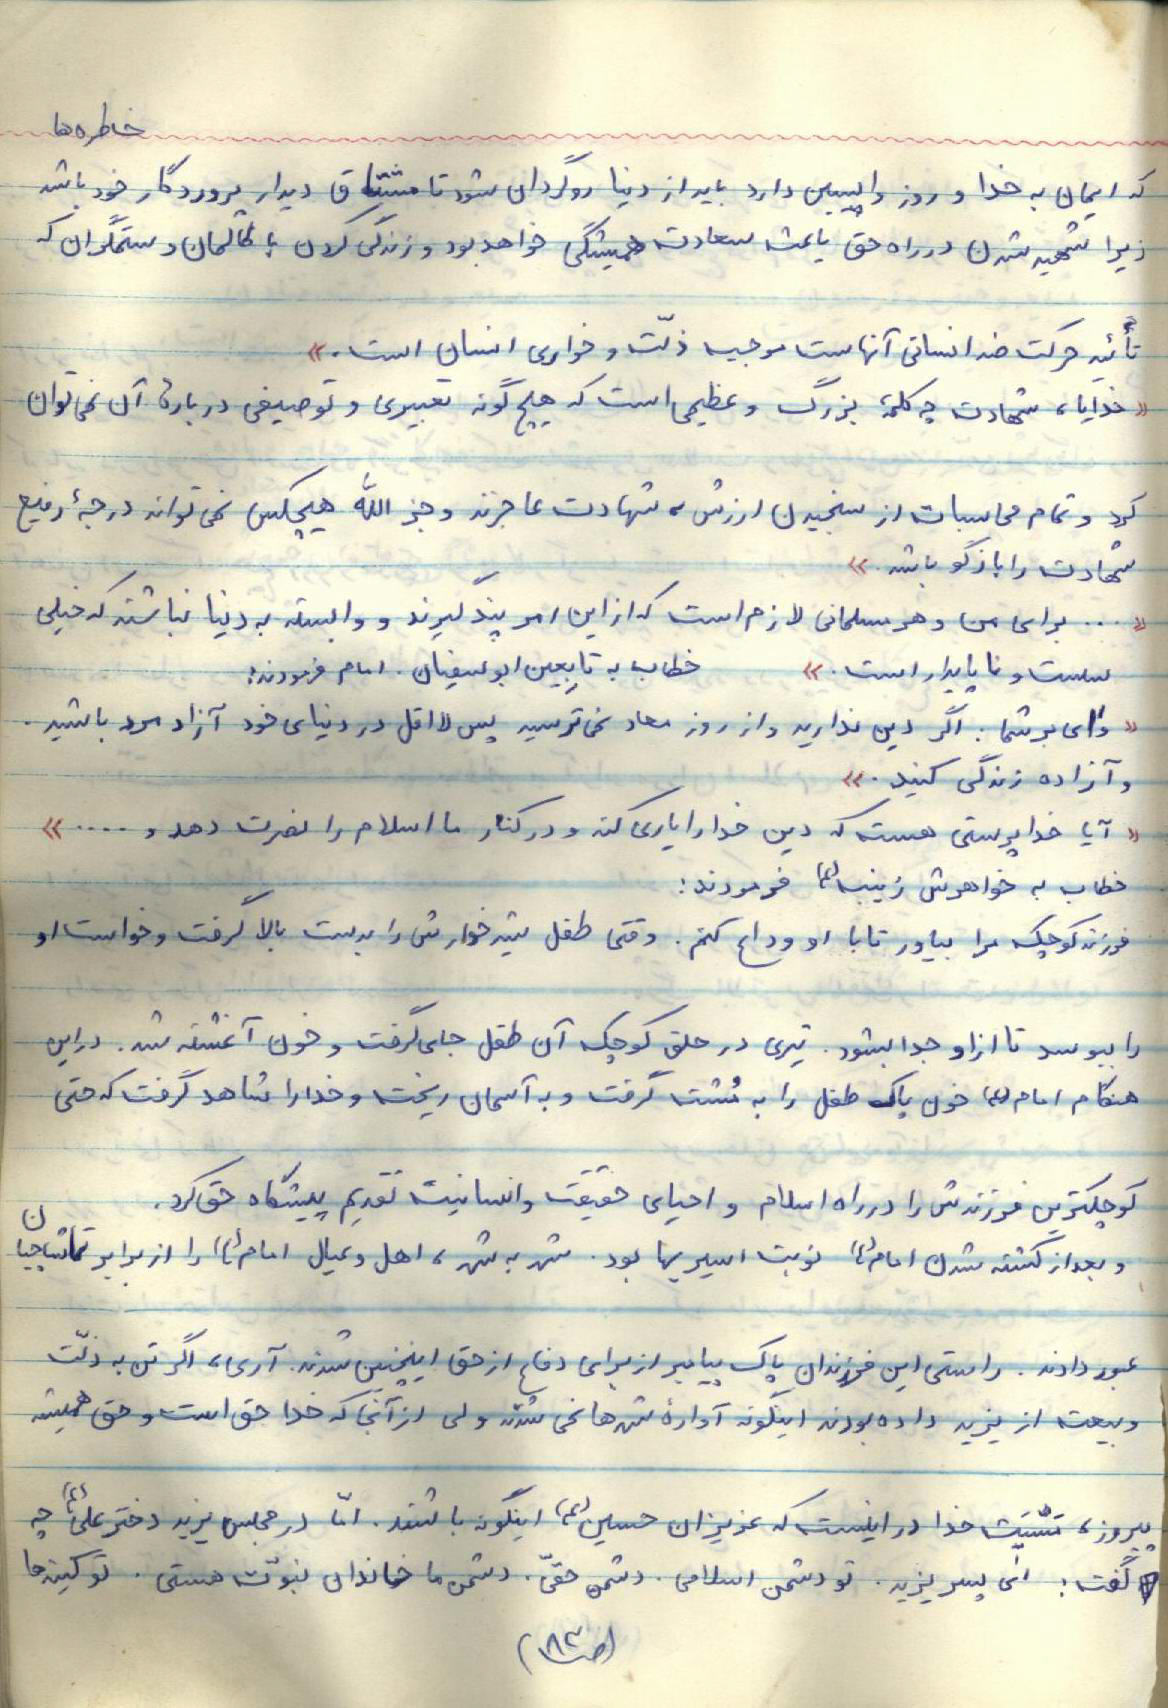 خاطره‌ها
که ایمان به خدا و روز واپسین دارد باید از دنیا روگردان شود تا مشتاق دیدار پروردگار خود باشد
زیرا شهید شدن در راه حق باعث سعادت همیشگی خواهد بود و زندگی کردن با ظالمان و ستمگران که
تأئید حرکت ضد انسانی آنهاست موجب ذلّت و خواری انسان است.»
«خدایا، شهادت چه کلمهٔ بزرگ و عظیمی است که هیچ گونه تعبیری و توصیفی دربارهٔ آن نمی‌توان
کرد و تمام محاسبات از سنجیدن ارزش شهادت عاجزند و جز اللّه هیچکس نمی‌تواند درجهٔ رفیع
شهادت را بازگو باشد.»
«... برای من و هر مسلمانی لازم است که از این امر پند گیرند و وابسته به دنیا نباشند که خیلی
سست و ناپایدار است.» خطاب به تابعین ابوسفیان. امام فرمودند:
«وای بر شما. اگر دین ندارید و از روز معاد نمی‌ترسید پس لااقل در دنیای خود آزاد مرد باشید.
و آزاده زندگی کنید.»
«آیا خداپرستی هست که دین خدا را یاری کند و در کنار ما اسلام را نصرت دهد و ....»
خطاب به خواهرش زینب (ع) فرمودند:
فرزند کوچک مرا بیاور تا با او وداع کنم. وقتی طفل شیرخوارش را بدست بالا گرفت و خواست او
را ببوسد تا از او جدا بشود. تیری در حلق کوچک آن طفل جای گرفت و خون آغشته شد. در این
هنگام امام (ع) خون پاک طفل را به مُشت گرفت و به آسمان ریخت و خدا را شاهد گرفت که حتی
کوچکترین فرزندش را در راه اسلام و احیای حقیقت و انسانیت تقدیم پیشگاه حق کرد.
و بعد از کشته شدن امام (ع) نوبت اسیریها بود. شهر به شهر، اهل و عیال امام (ع) را از برابر تماشاچیان
عبور دادند. راستی این فرزندان پاک پیامبر از برای دفاع از حق اینچنین شدند. آری، اگر تن به ذلّت
و بیعت از یزید داده بودند اینگونه آوارهٔ شهرها نمی‌شدند ولی از آنجا که خدا حق است و حق همیشه
پیروز، مشیّت خدا در اینست که عزیزان حسین (ع) اینگونه باشند. امّا در مجلس یزید دختر علی (ع) چه
گفت: ای پسر یزید. تو دشمن اسلامی. دشمن حقّی. دشمن ما خاندان نبوّت هستی. تو کینه‌ها
(ص ۱۸۳)